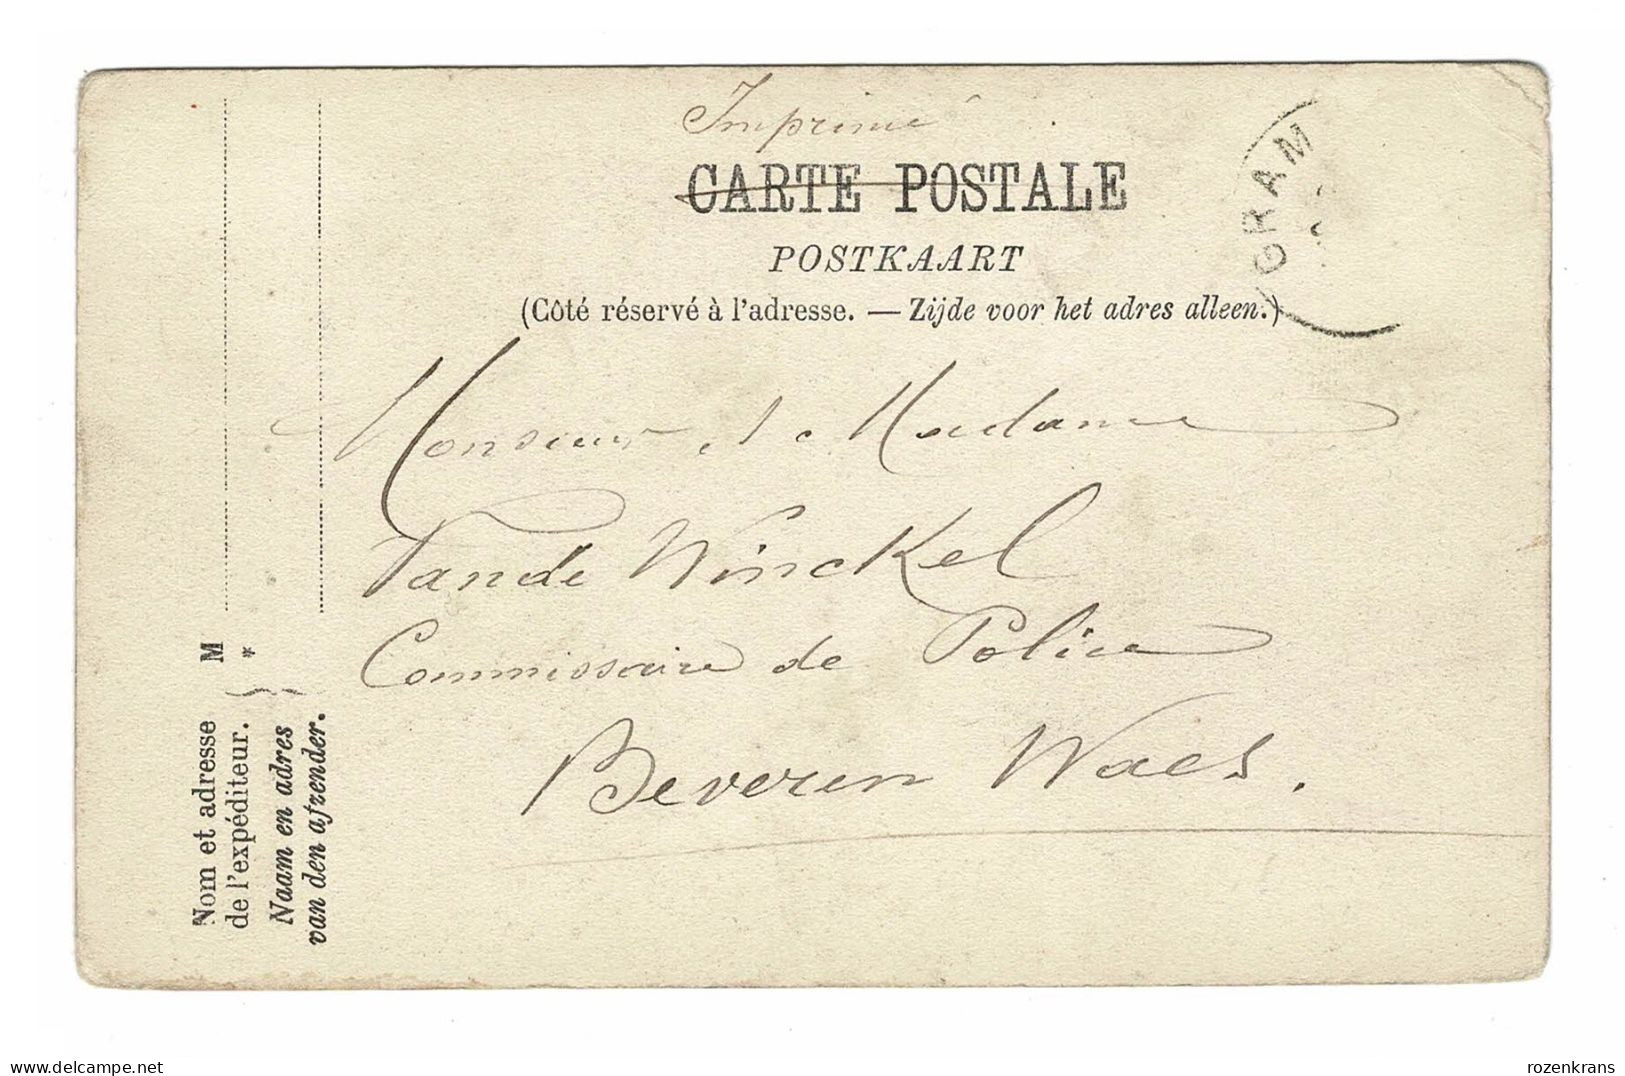 Imprimé
CARTE POSTALE
POSTKAART
(Côté réservé à l'adresse. — Zijde voor het adres alleen.)
GRAM
Monsieur et Madame
Vande Winckel
Commissaire de Police
Beveren Waes.
M
*
Nom et adresse
de l'expéditeur.
Naam en adres
van den afzender.
delcampe.net
rozenkrans